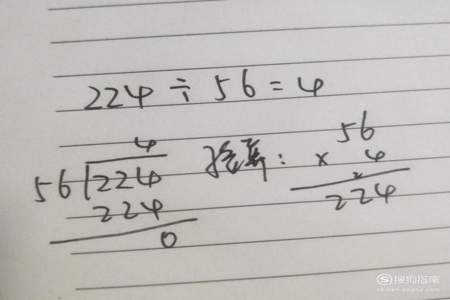 224÷56=4
4
56 224
224
0
验算:
56
× 4
2
224
搜狗指南